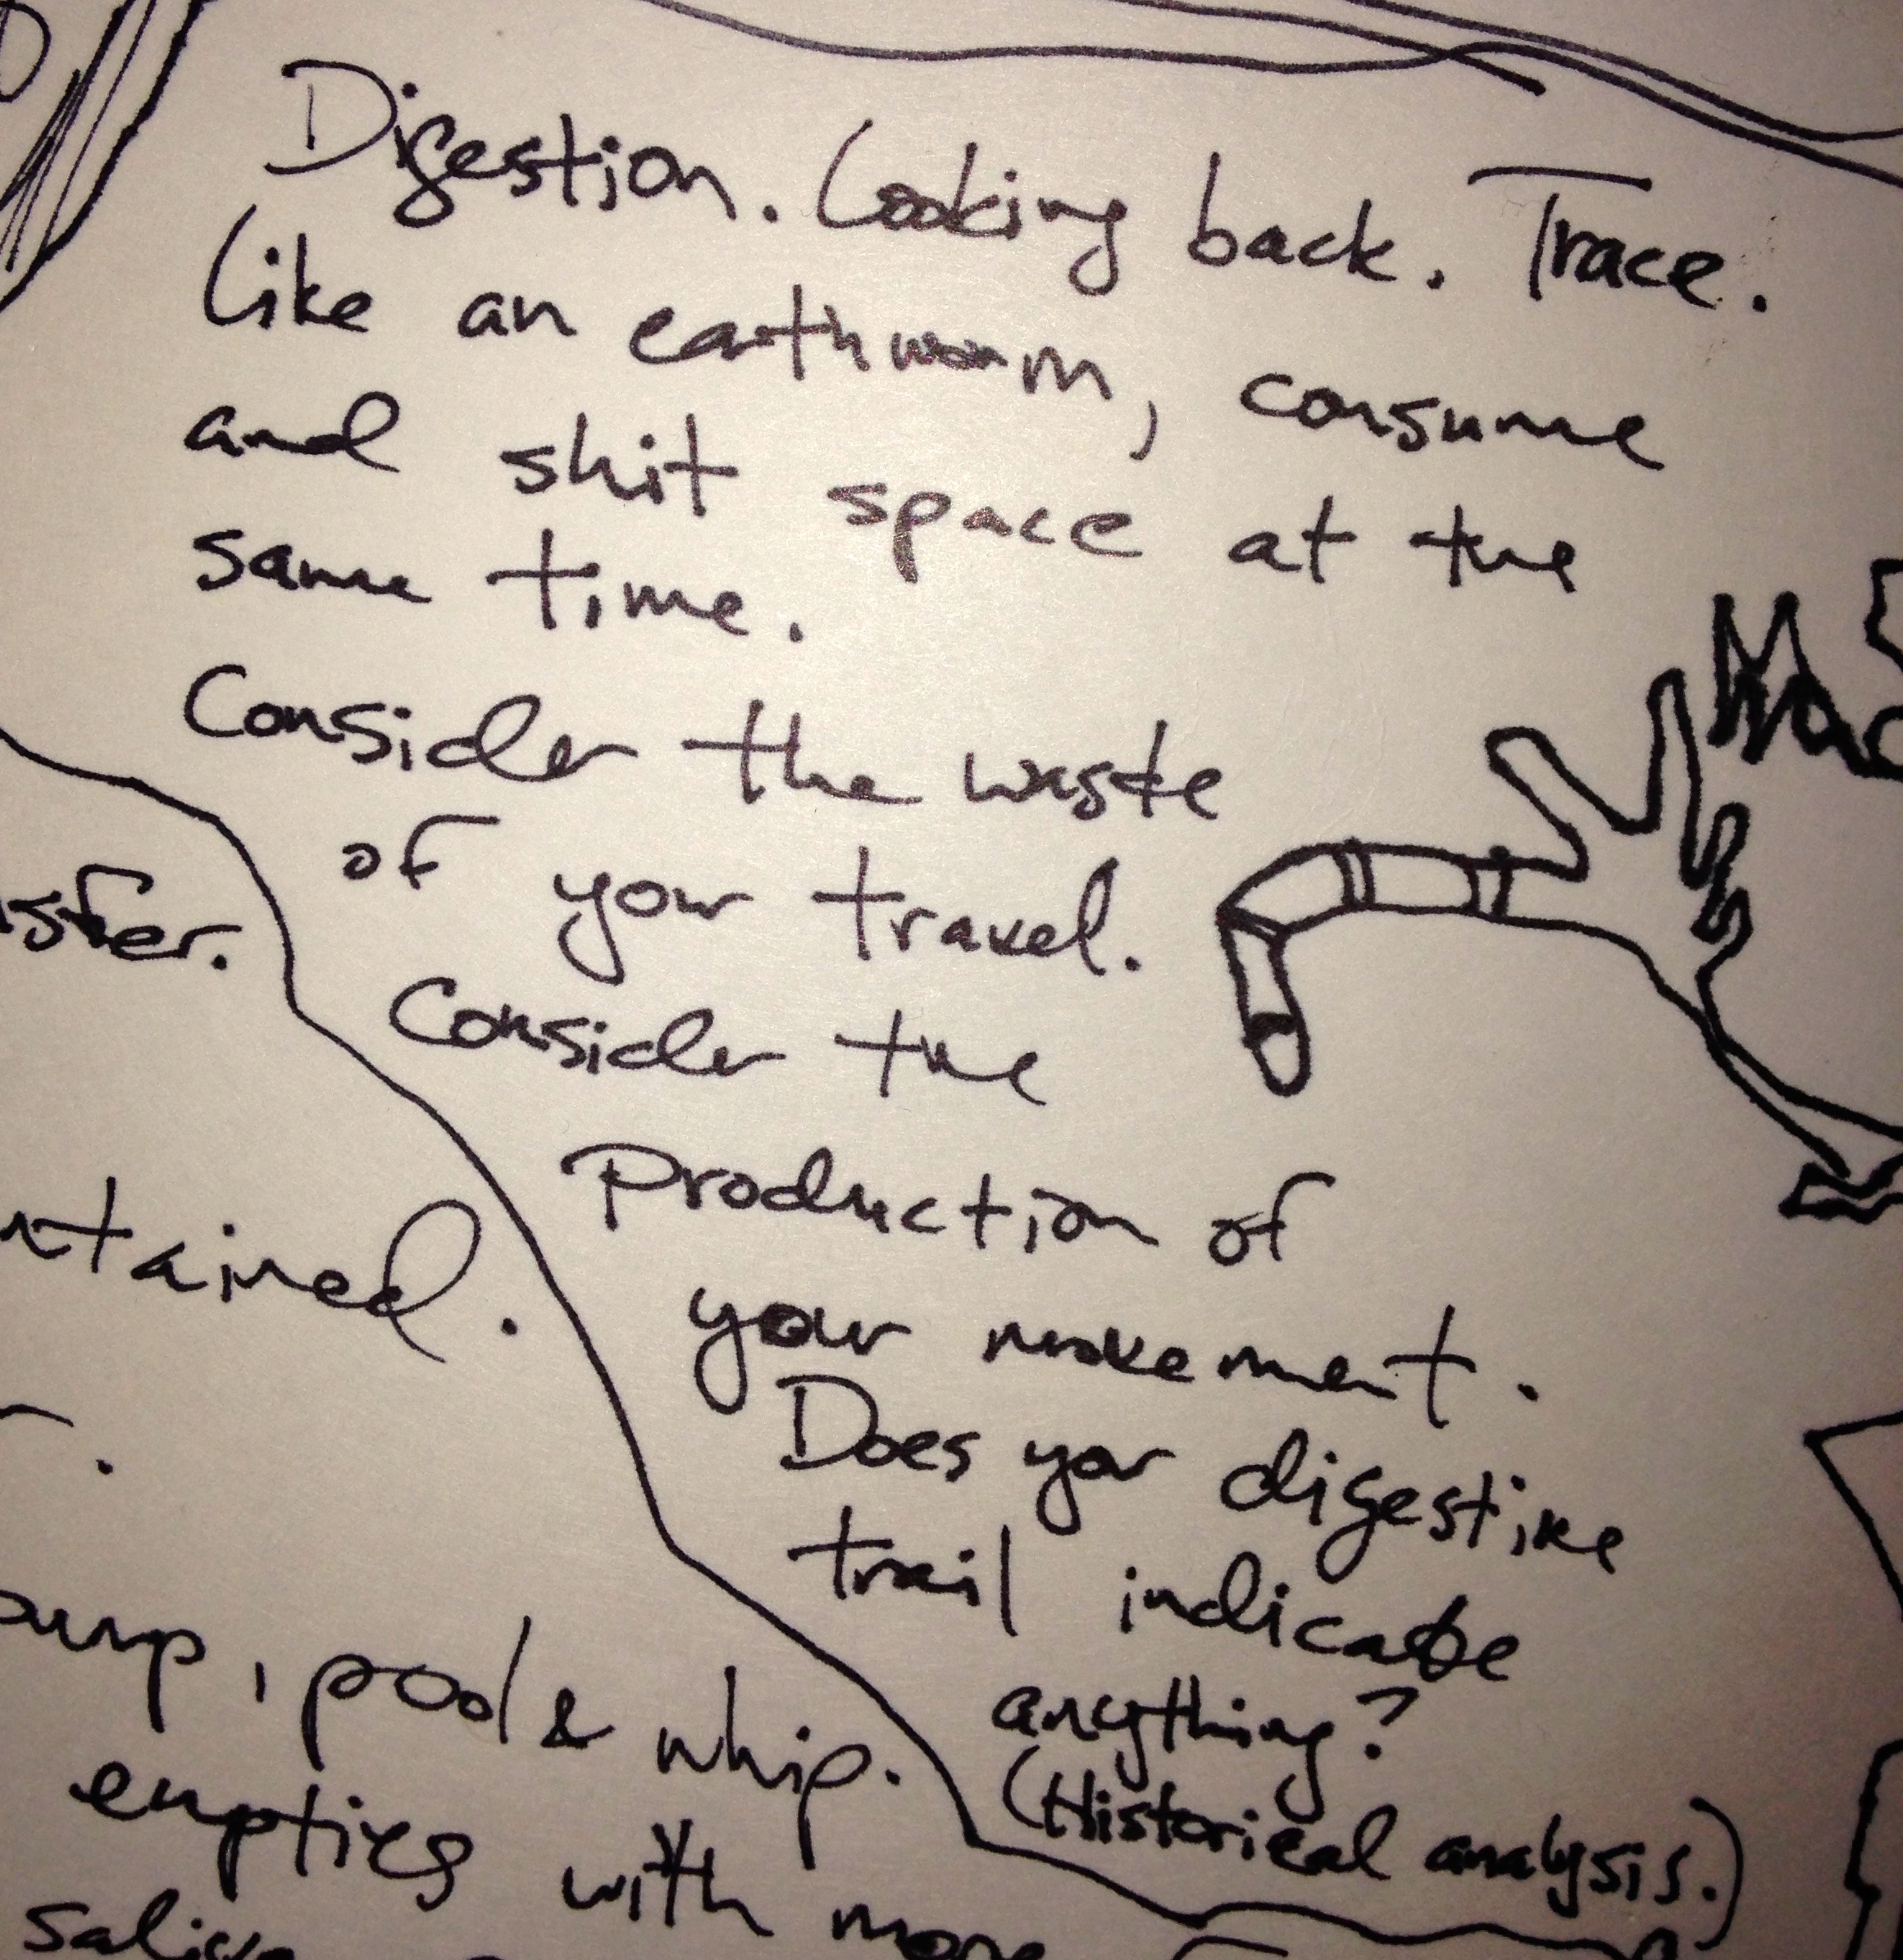 Digestion. Looking back. Trace.
Like an earthworm, consume
and shit space at the
same time.
Consider the waste
of your travel.
Consider the
Production of
your movement.
Does your digestive
trail indicate
anything?
(Historical analysis.)
sfer.
ntained.
ump, pool & whip.
empties with more
saliva
Mac